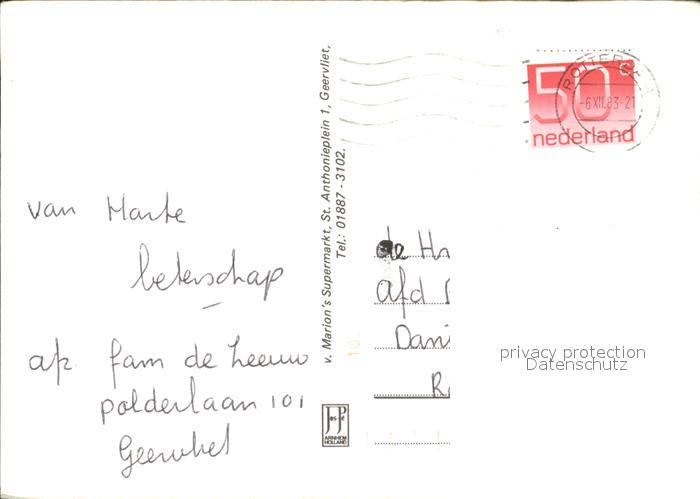 van Harte
beterschap
afz fam de Leeuw
polderlaan 101
Geervliet
v. Marion's Supermarkt, St. Anthonieplein 1, Geervliet,
Tel.: 01887 - 3102.
JosPé
ARNHEM
HOLLAND
ROTTERDAM
-6 XII.83-21
50 c
nederland
de
afd
Dani
privacy protection
Datenschutz